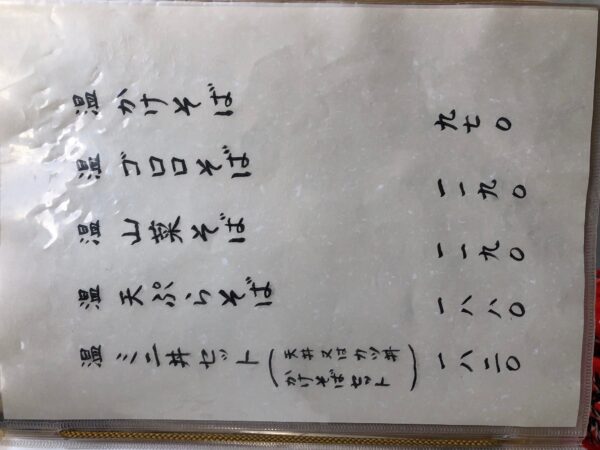 温 かけそば 九七〇
温 トロロそば 一一九〇
温 山菜そば 一一九〇
温 天ぷらそば 一八八〇
温 ミニ丼セット(天丼又はカツ丼
かけそばセット) 一八二〇